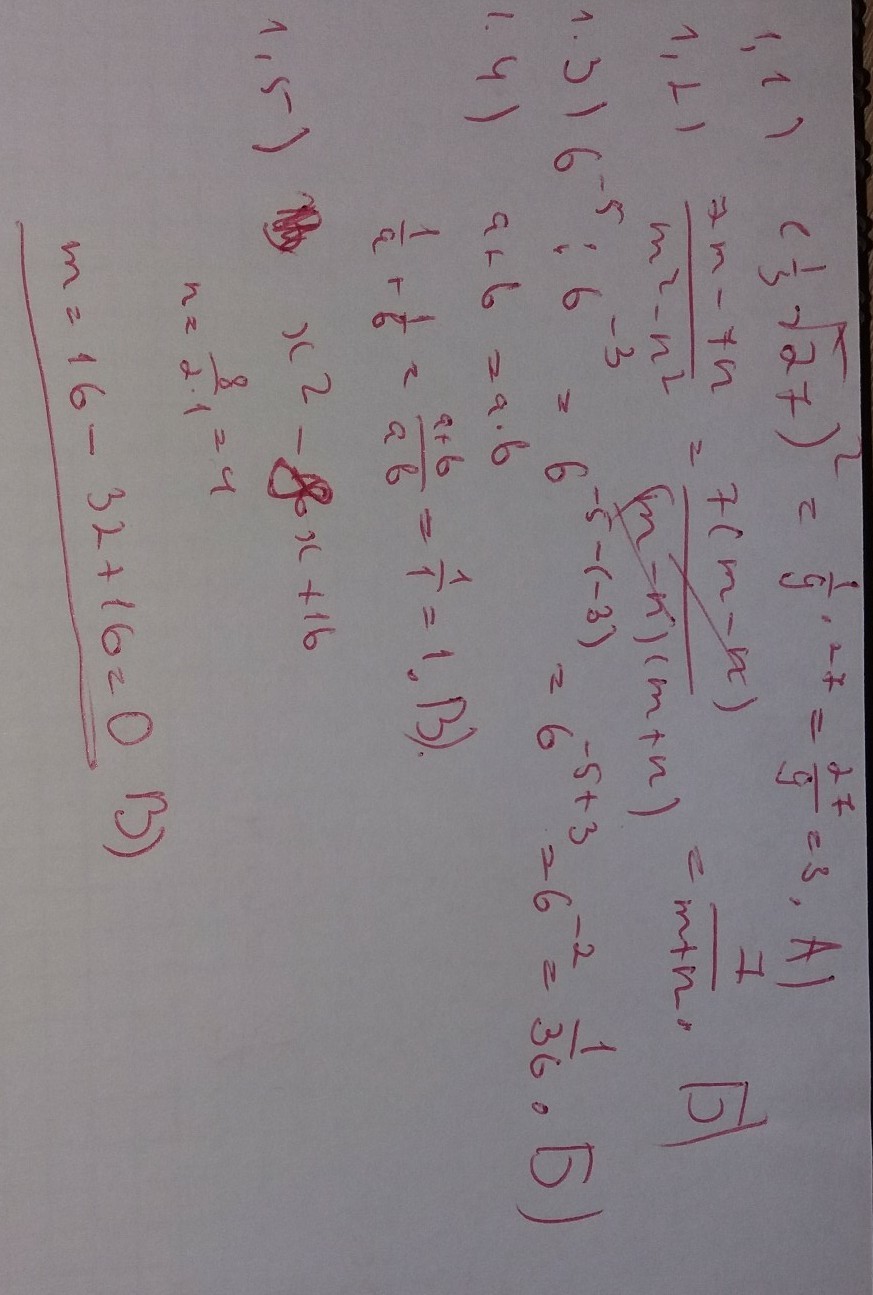 1,1) (1/3 √27)² = 1/9 · 27 = 27/9 = 3. А)
1,2) (7m - 7n)/(m² - n²) = 7(m - n)/((m - n)(m + n)) = 7/(m+n). Б)
1.3) 6⁻⁵ : 6⁻³ = 6⁻⁵⁻⁽⁻³⁾ = 6⁻⁵⁺³ = 6⁻² = 1/36. Б)
1.4) a + b = a · b
1/a + 1/b = (a+b)/(ab) = 1/1 = 1. В).
1,5) x² - 8x + 16
n = 8/(2·1) = 4
m = 16 - 32 + 16 = 0 В)